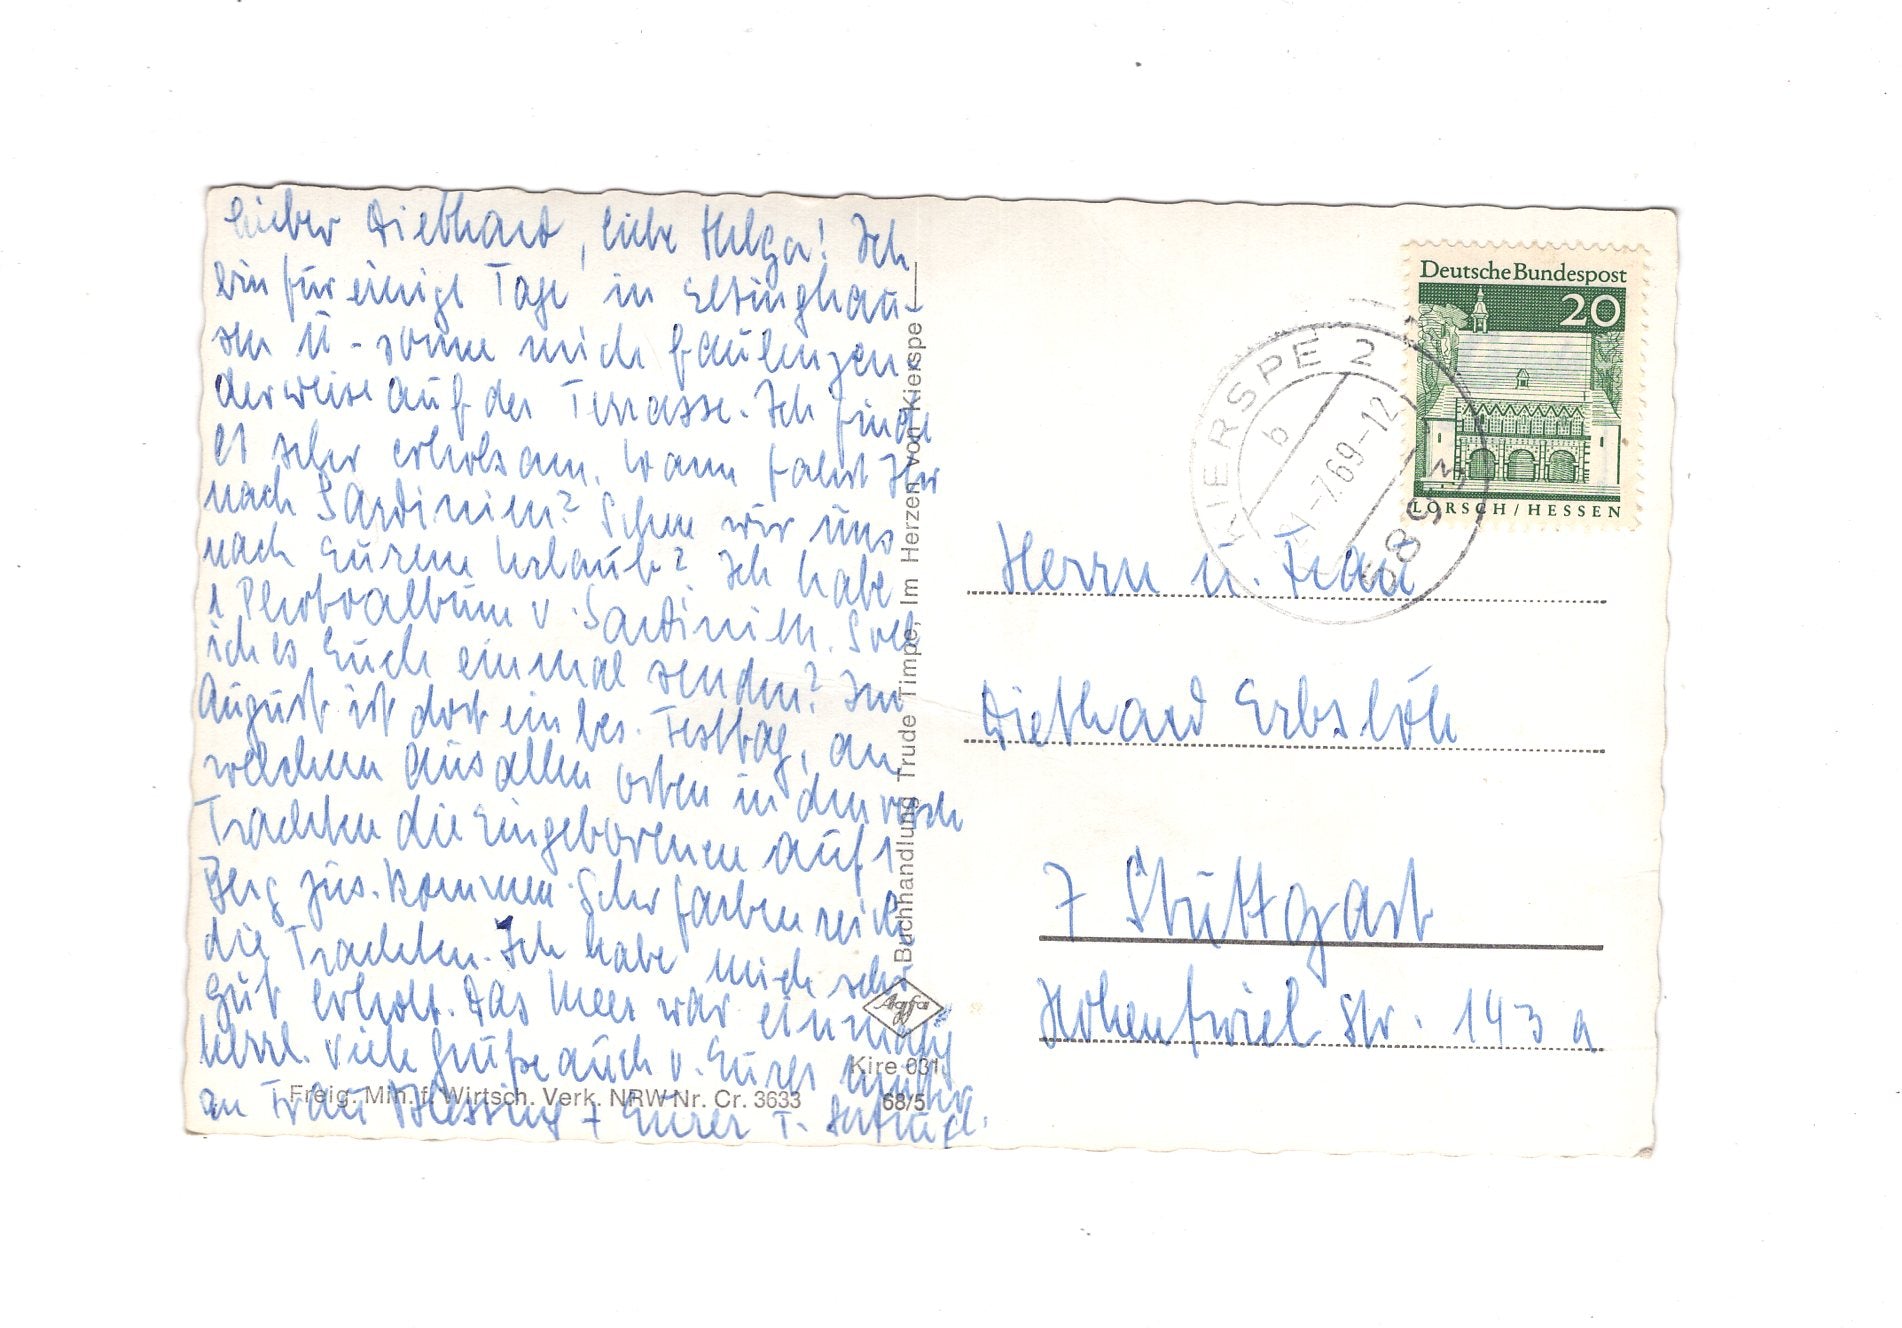 Lieber Diethard, liebe Helga! Ich
bin für einige Tage in Elsinghau-
sen u. sonne mich faulenzen
derweise auf der Terrasse. Ich finde
es sehr erholsam. Wann fahrt Ihr
nach Sardinien? Sehen wir uns
nach Eurem Urlaub? Ich habe
1 Photoalbum v. Sardinien. Soll
ich es Euch einmal senden? Im
August ist dort ein bes. Festtag, an
welchem aus allen Orten in den versch
Trachten die Eingeborenen auf 1
Berg zus. kommen. Sehr farbenreich
die Trachten. Ich habe mich sehr
gut erholt. Das Meer war einmalig
herrl. Viele Grüße auch v. Eurer Mutter
an Frau Blessing + Eurer T.
Buchhandlung Trude Timpe, Im Herzen von Kierspe
Agfa
Kire 031
68/5
Freig. Min. f. Wirtsch. Verk. NRW Nr. Cr. 3633
Deutsche Bundespost
20
LORSCH/HESSEN
KIERSPE 2
b
-7.69-12
5893
Herrn u. Frau
Diethard Erbslöh
7 Stuttgart
Hohentwiel Str. 143 a